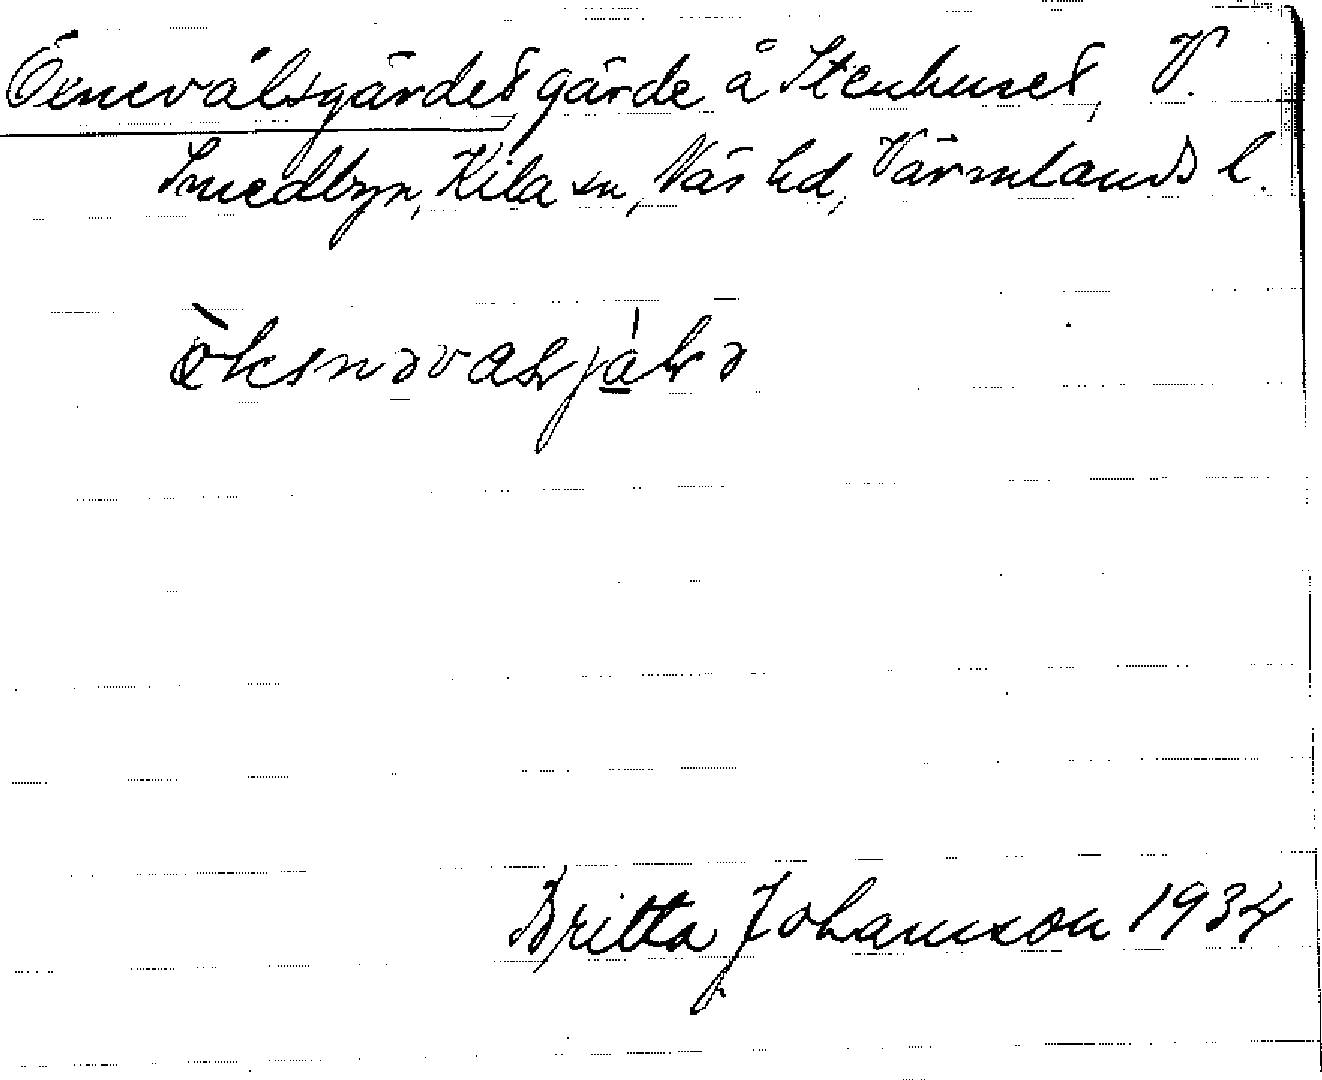 Enevalsgärdet, gärde å Stenhuset, V.
Smedbyn, Kila sn, Näs hd, Värmlands l.
Britta Johansson 1934